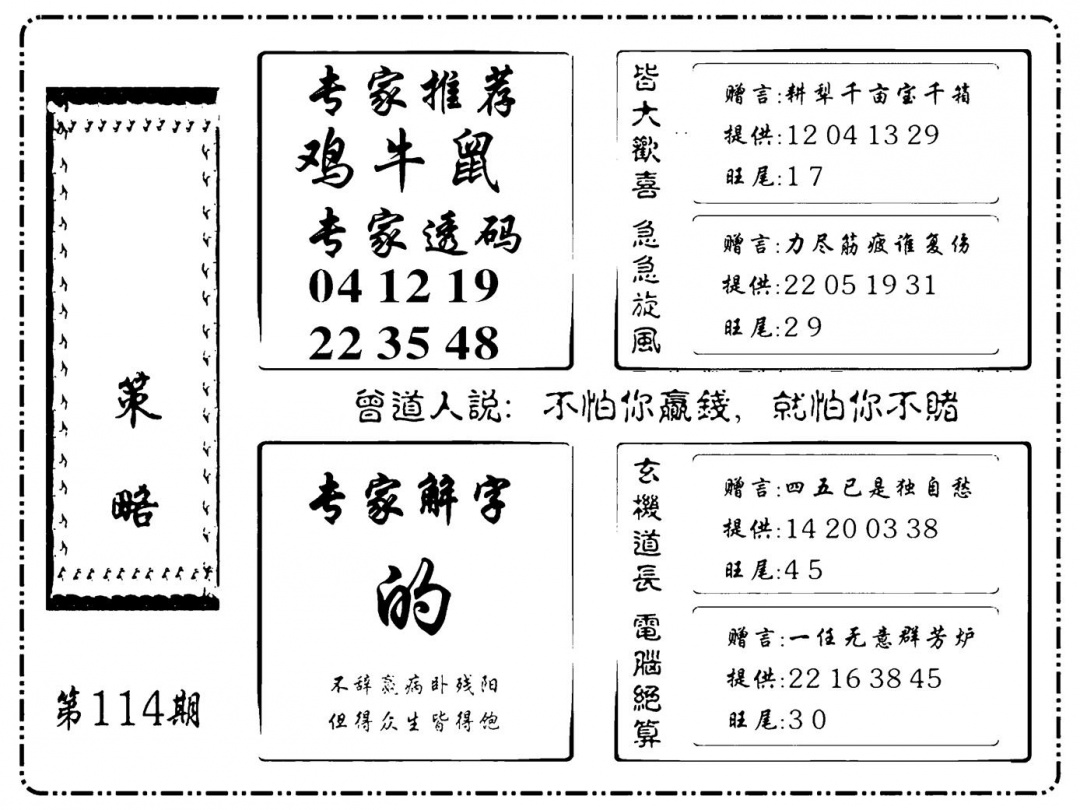 策略
第114期
专家推荐
鸡牛鼠
专家透码
04 12 19
22 35 48
皆大歡喜
赠言:耕犁千亩宝千箱
提供:12 04 13 29
旺尾:1 7
急急旋風
赠言:力尽筋疲谁复伤
提供:22 05 19 31
旺尾:2 9
曾道人説: 不怕你贏錢, 就怕你不賭
专家解字
的
不辞羸病卧残阳
但得众生皆得饱
玄機道長
赠言:四五已是独自愁
提供:14 20 03 38
旺尾:4 5
電腦絕算
赠言:一任无意群芳炉
提供:22 16 38 45
旺尾:3 0